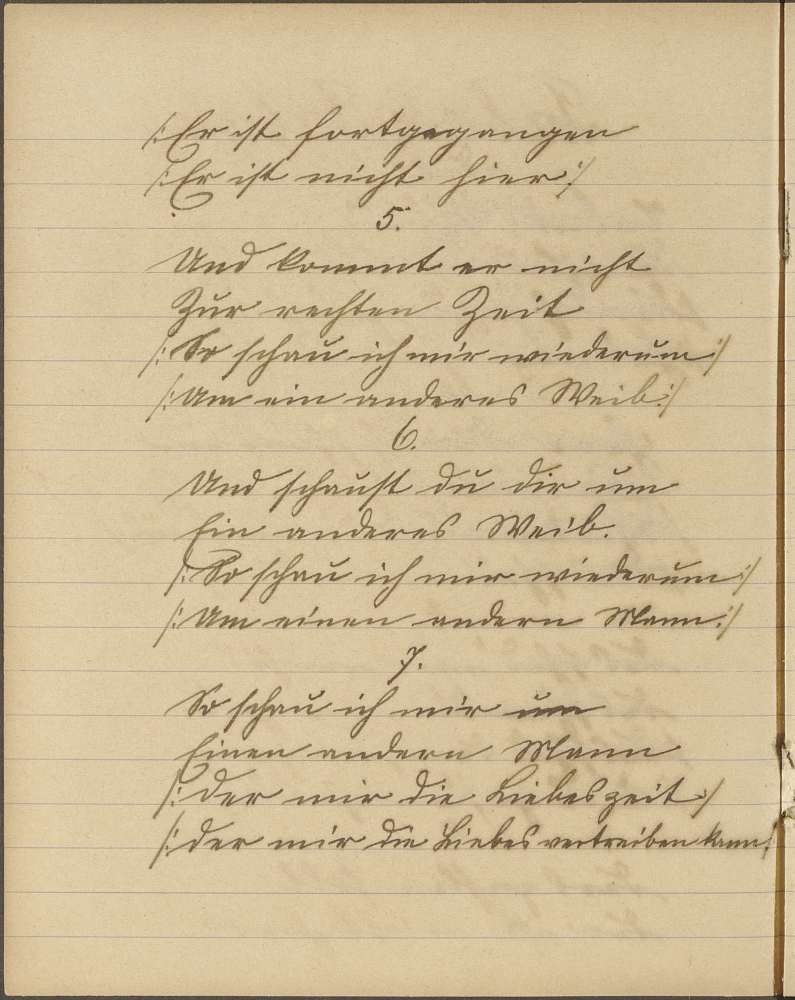 /: Er ist fortgegangen
/: Er ist nicht hier :/
5.
Und kommt er nicht
Zur rechten Zeit
/: So schau ich mir wiederum :/
/: Um ein anderes Weib :/
6.
Und schaust du dir um
Ein anderes Weib.
/: So schau ich mir wiederum :/
/: Um einen andern Mann :/
7.
So schau ich mir um
Einen andern Mann
/: Der mir die Liebeszeit :/
/: Der mir die Liebes vertreiben kann :/